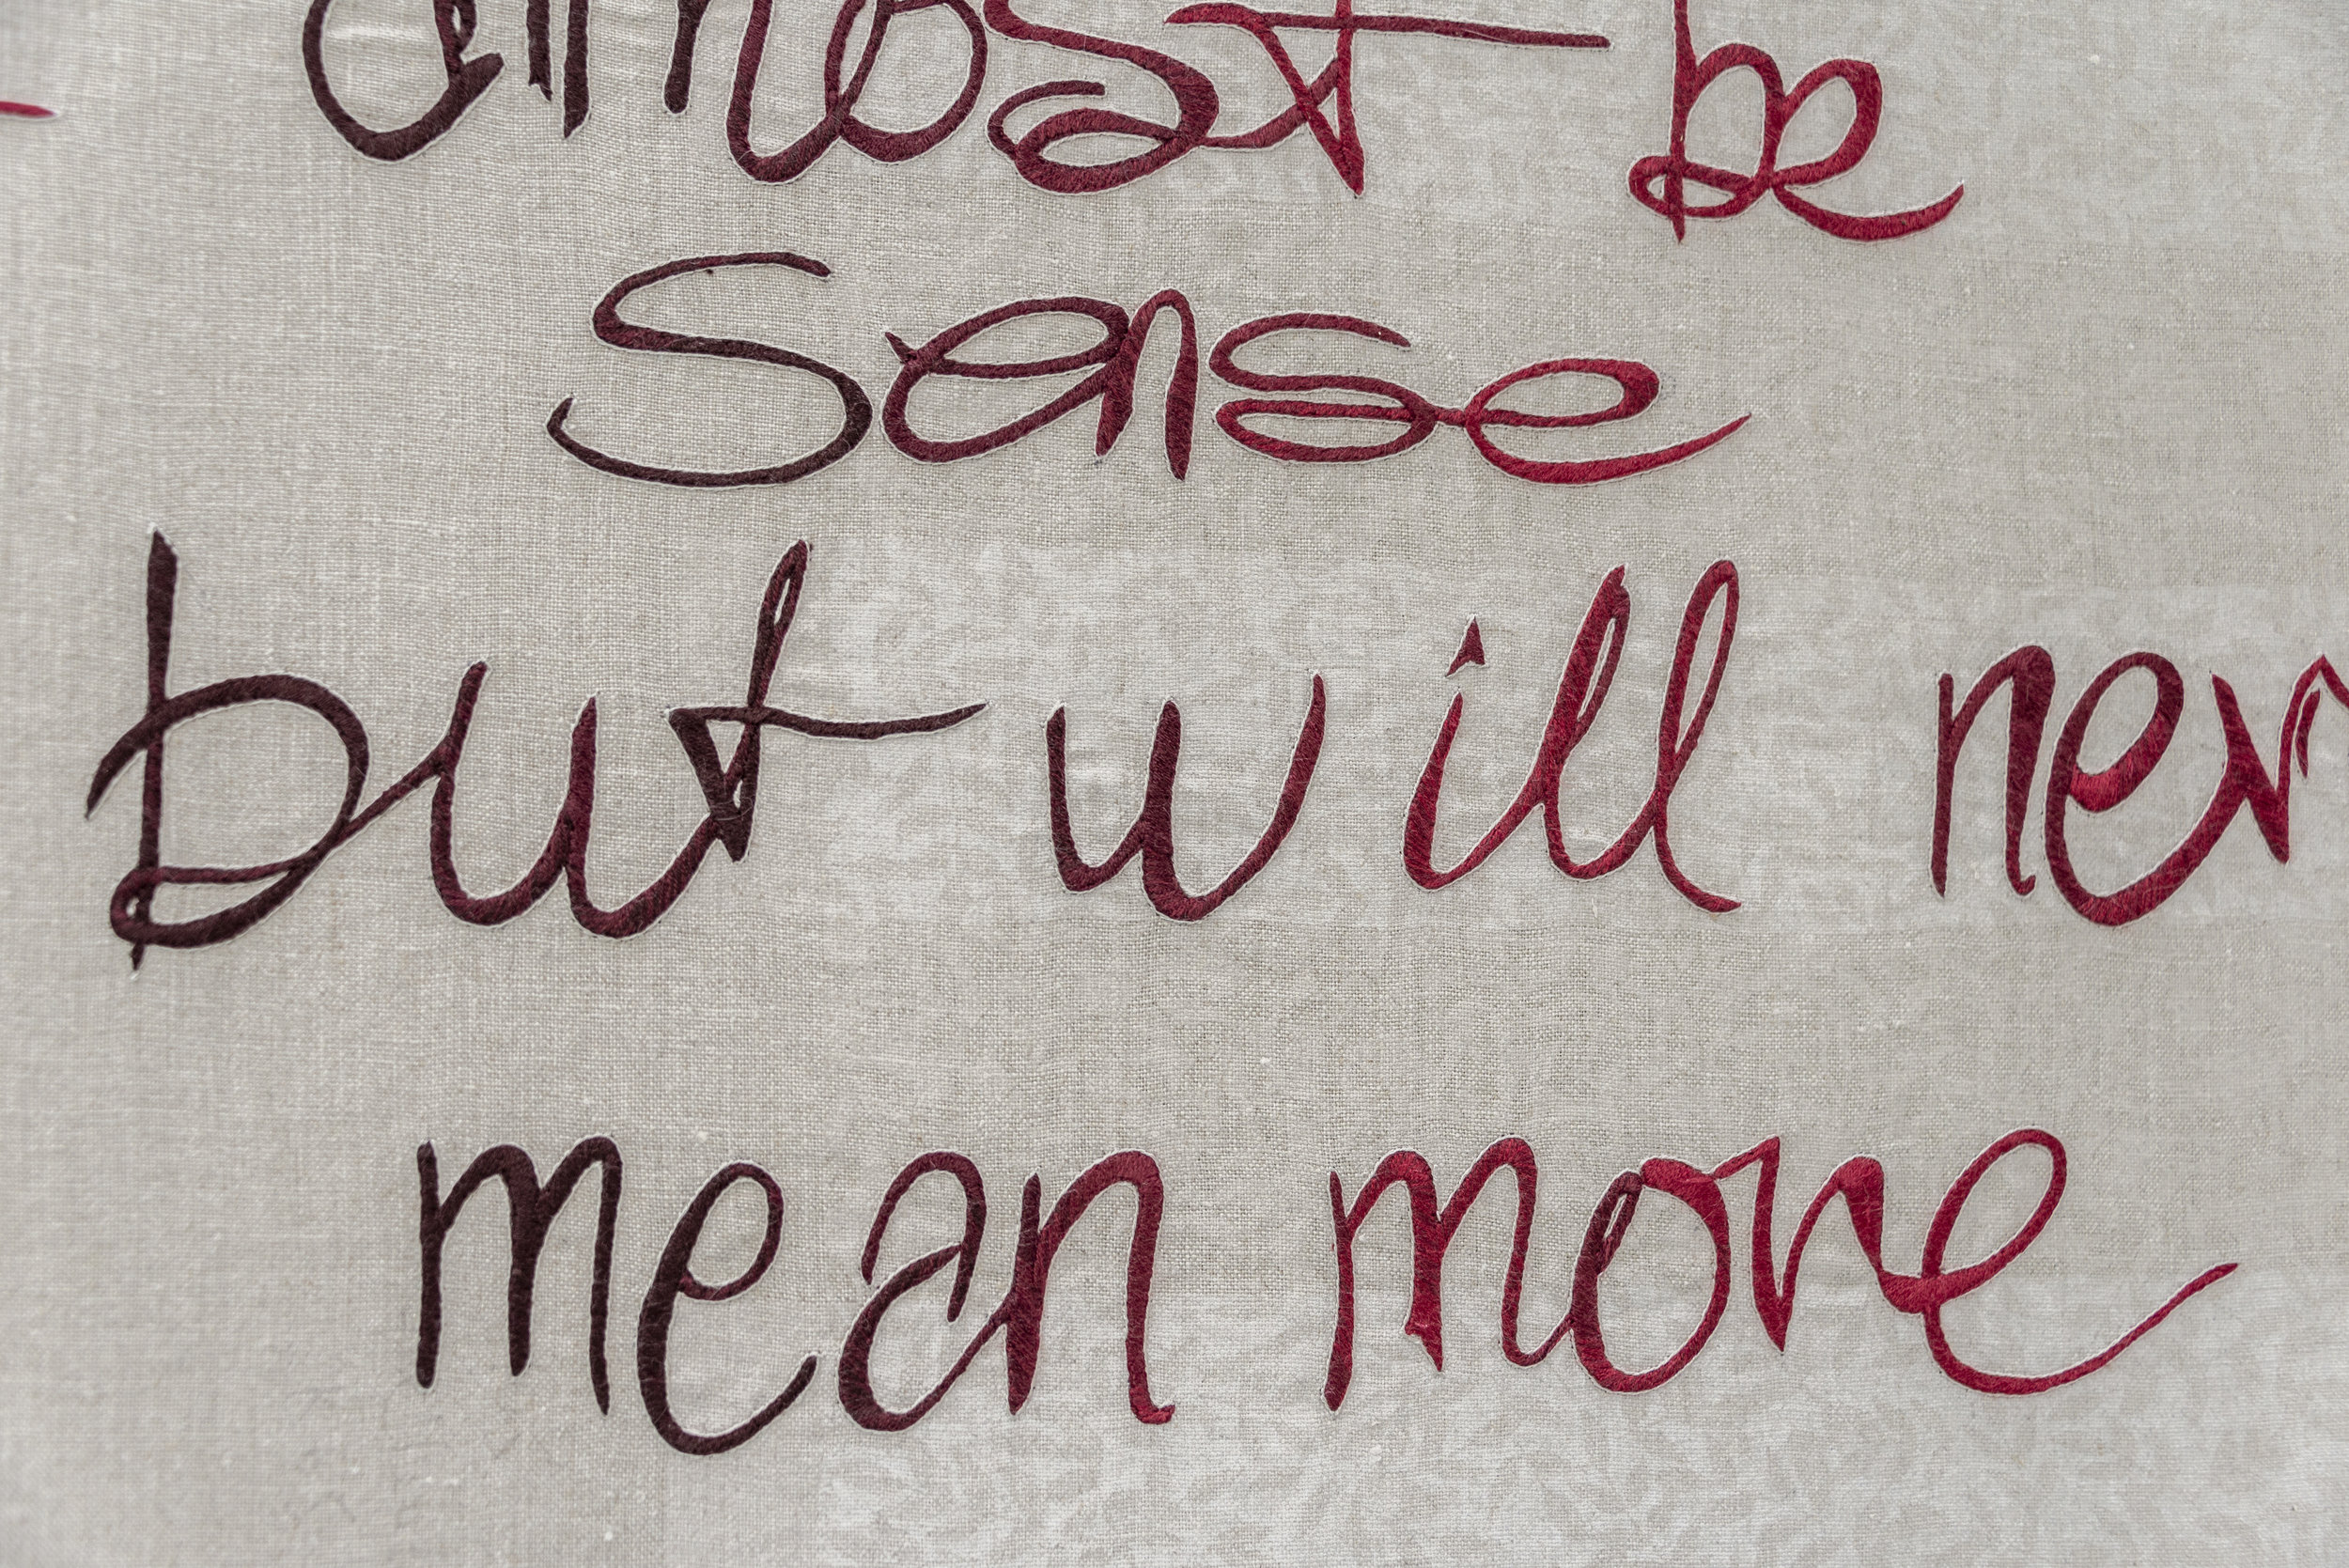 almost be
Sense
but will nev
mean more